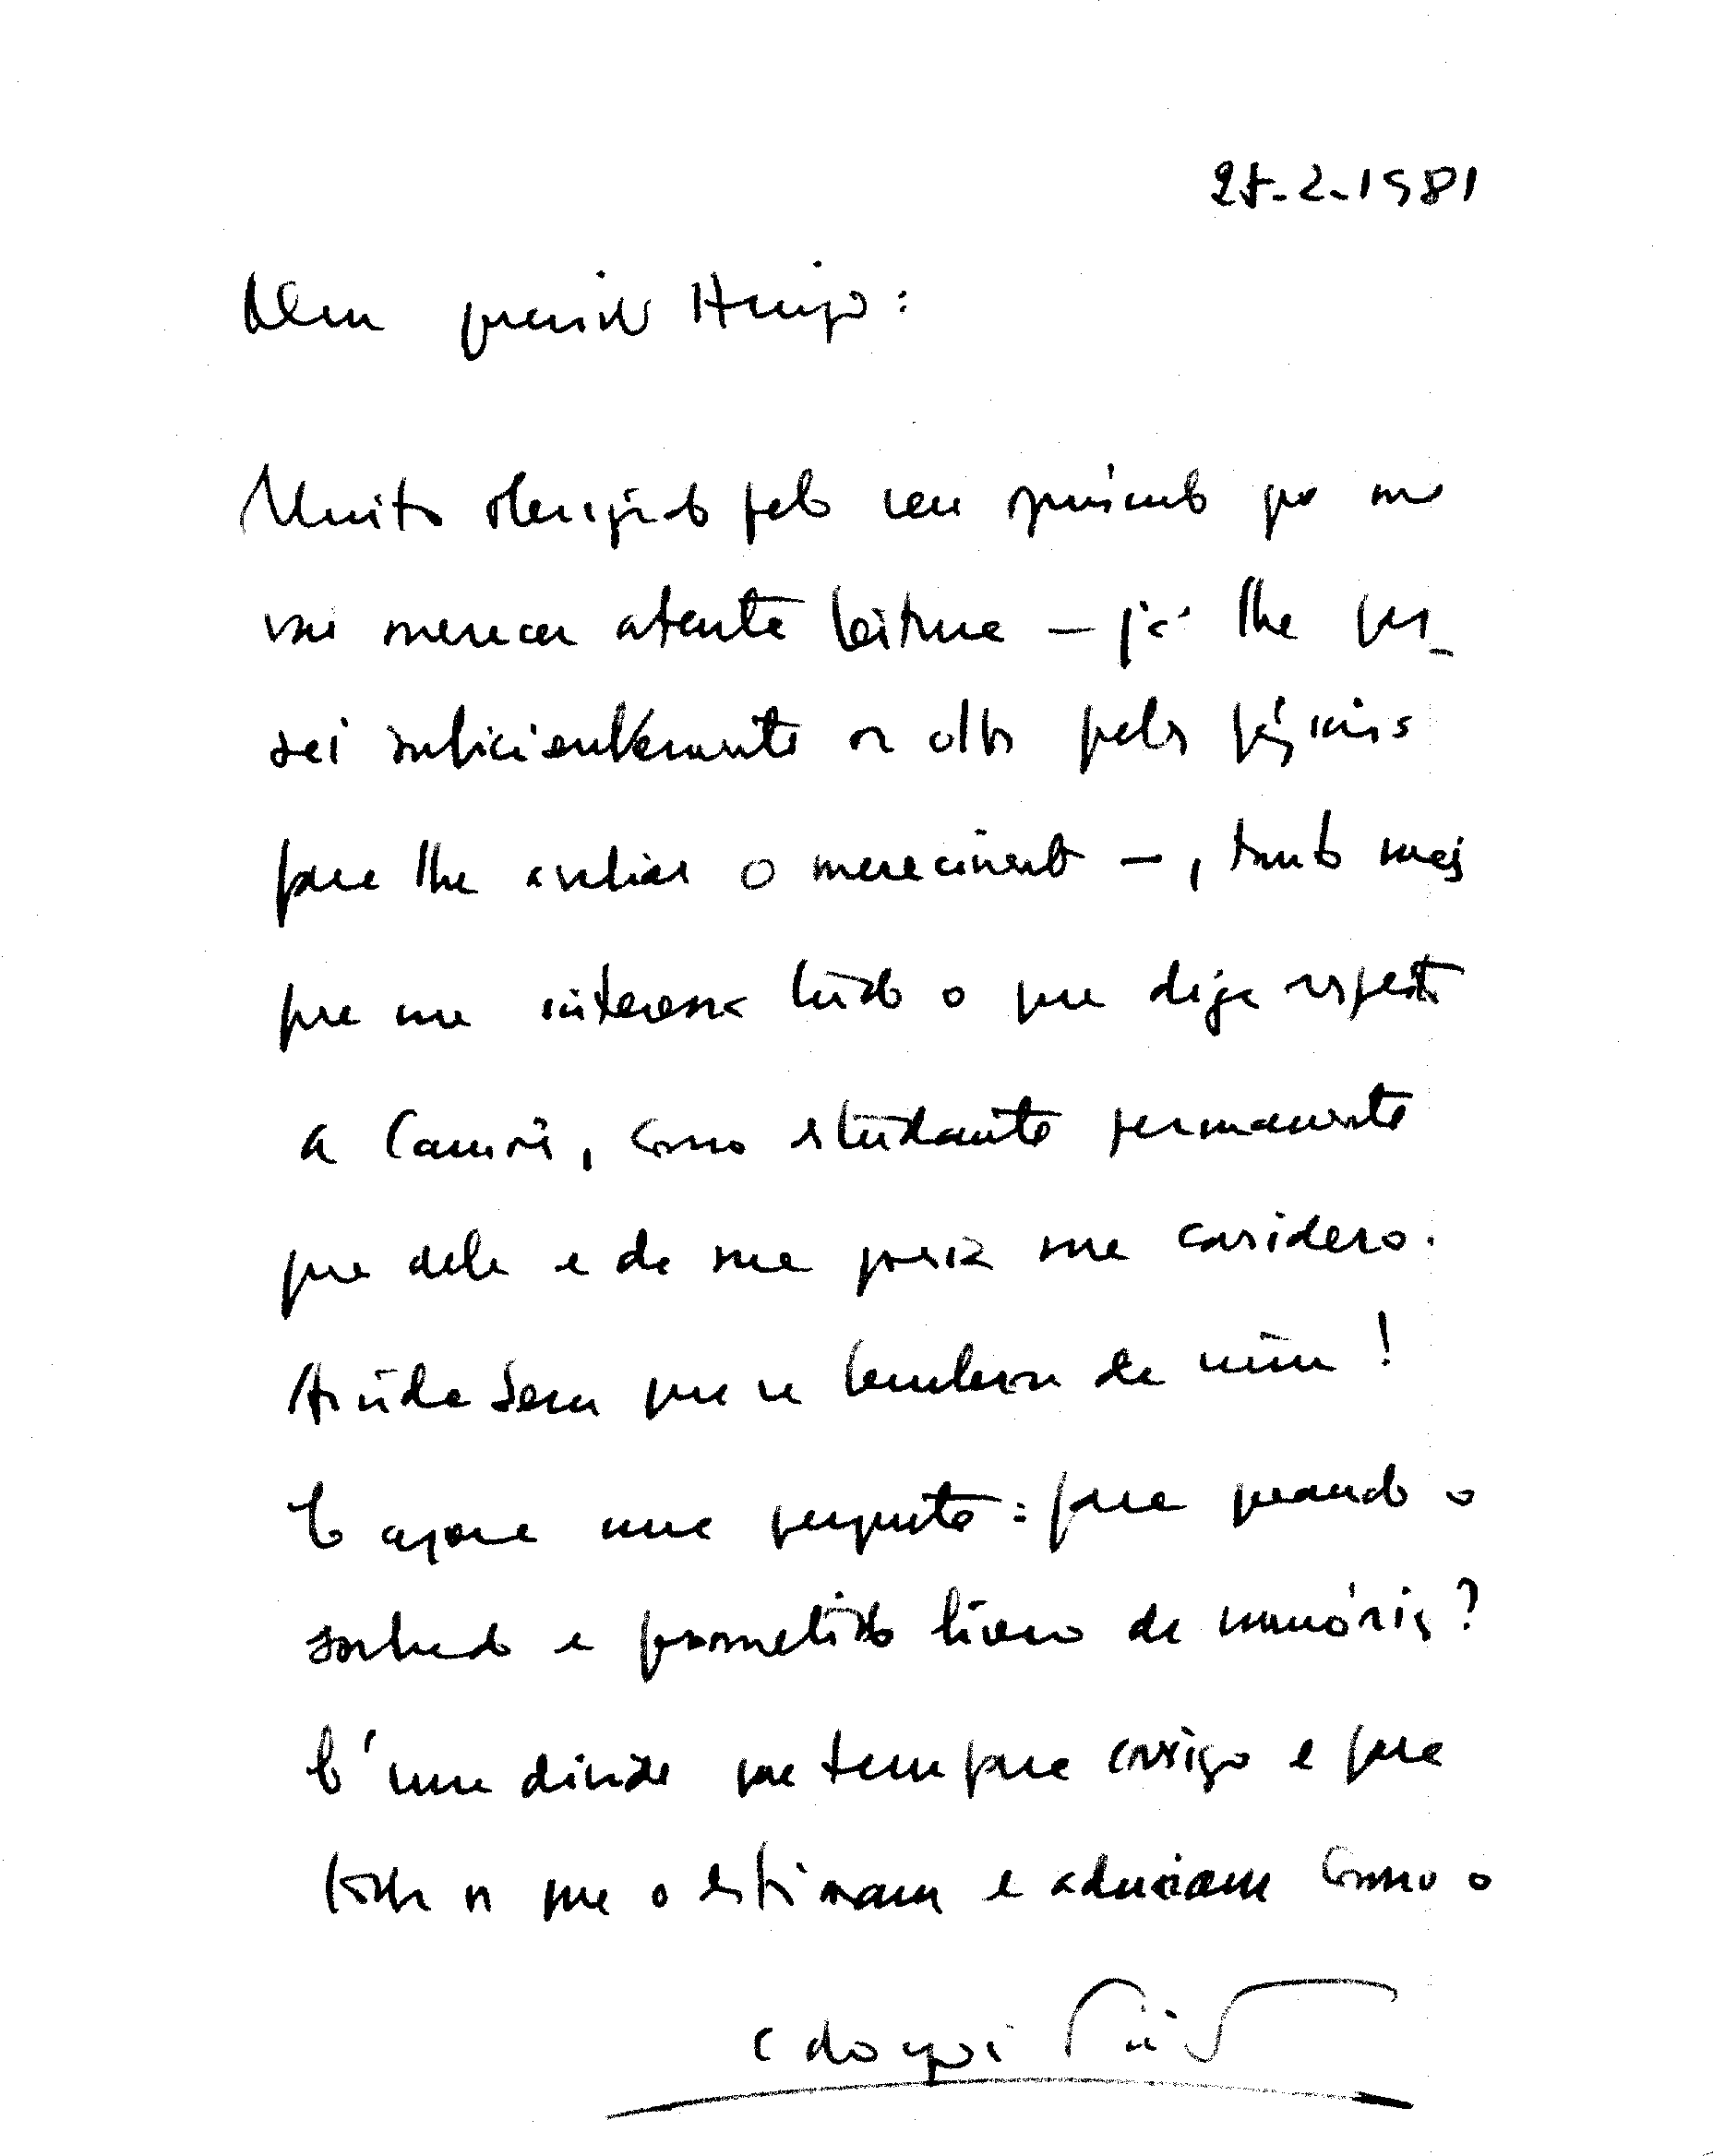 25-2-1981
Meu querido Amigo:
Muito obrigado pelo seu opúsculo que me
vai merecer atenta leitura — já lhe pas-
sei suficientemente os olhos pelas páginas
para lhe avaliar o merecimento —, tanto mais
que me interessa tudo o que diga respeito
a Camões, como estudante permanente
que dele e da sua poesia me considero.
Ainda bem que se lembrou de mim!
E agora uma pergunta: para quando o
sonhado e prometido livro de memórias?
É uma dívida que tem para consigo e para
todos os que o estimam e admiram como o